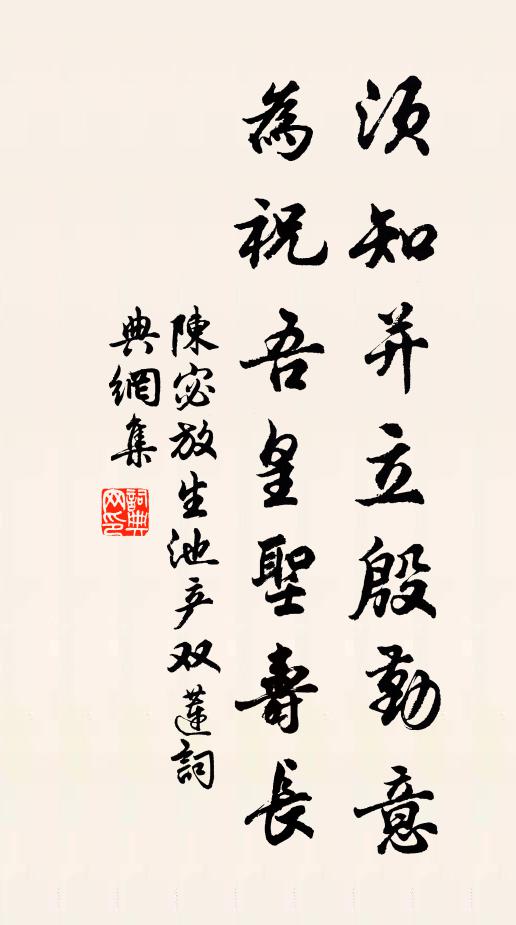 須知并立殷勤意
為祝吾皇聖壽長
陳宓放生池产双蓮詞
典網集
詞典
网印